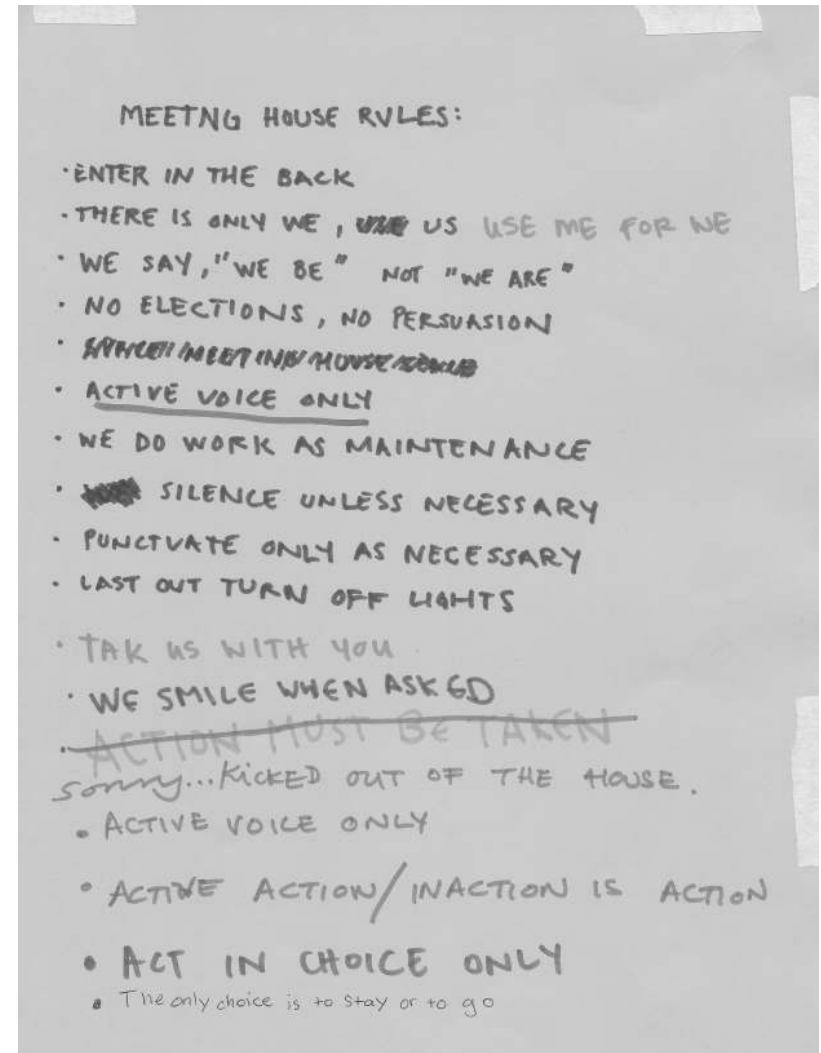 MEETNG HOUSE RULES:
·ENTER IN THE BACK
·THERE IS ONLY WE, US USE ME FOR WE
·WE SAY, "WE BE" NOT "WE ARE"
·NO ELECTIONS, NO PERSUASION
·
·ACTIVE VOICE ONLY
·WE DO WORK AS MAINTENANCE
·SILENCE UNLESS NECESSARY
·PUNCTUATE ONLY AS NECESSARY
·LAST OUT TURN OFF LIGHTS
·TAK US WITH YOU
·WE SMILE WHEN ASKED
·ACTION MUST BE TAKEN
sorry...KICKED OUT OF THE HOUSE.
• ACTIVE VOICE ONLY
• ACTIVE ACTION/INACTION IS ACTION
• ACT IN CHOICE ONLY
• The only choice is to stay or to go